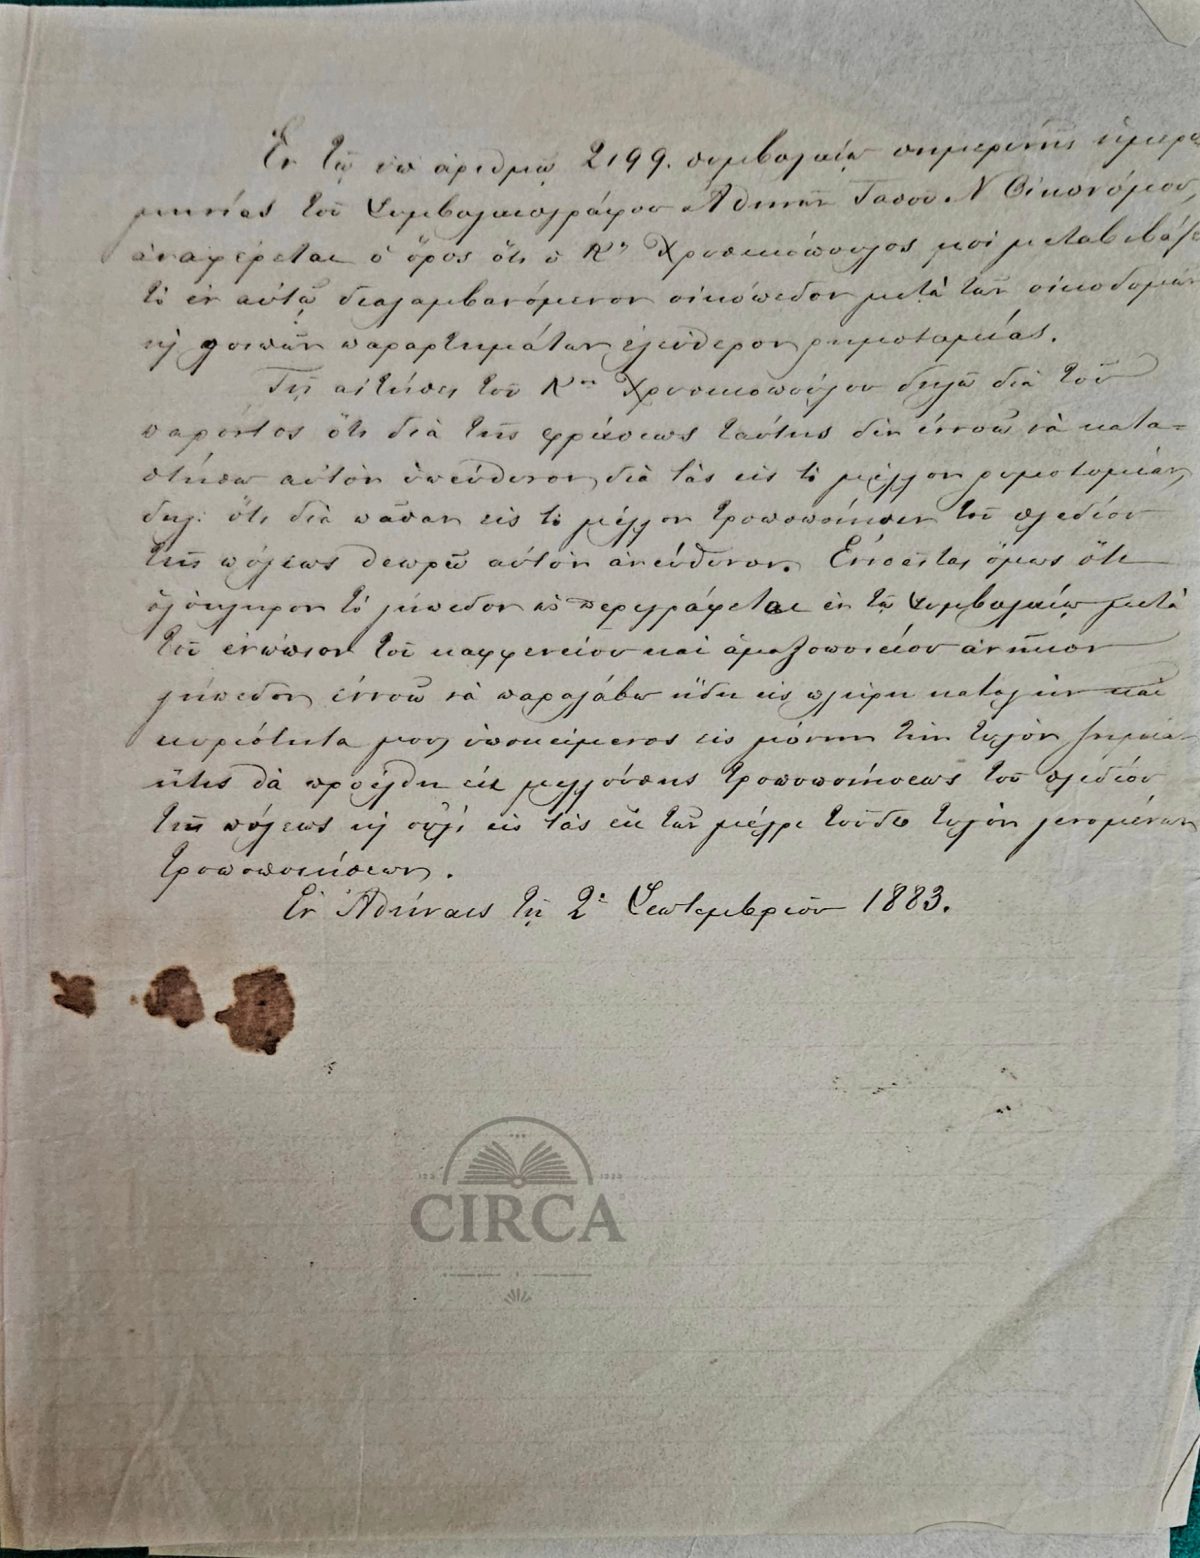 Ἐν τῷ ὑπ ἀριθμῷ 2199. συμβολαίῳ σημερινῆς ἡμερο
μηνίας τοῦ Συμβολαιογράφου Ἀθηνῶν Τάσου Ν Οἰκονόμου,
ἀναφέρεται ὁ ὅρος ὅτι ὁ Κος Χρυσικόπουλος μοὶ μεταβιβάζε
τὸ ἐν αὐτῷ διαλαμβανόμενον οἰκόπεδον μετὰ τῶν οἰκοδομῶν
κ λοιπῶν παραρτημάτων ἐλεύθερον ρυμοτομίας.
Τῇ αἰτήσει τοῦ Κου Χρυσικοπούλου δηλῶ διὰ τοῦ
παρόντος ὅτι διὰ τῆς φράσεως ταύτης δὲν ἐννοῶ νὰ κατα=
στήσω αὐτὸν ὑπεύθυνον διὰ τὰς εἰς τὸ μέλλον ρυμοτομίας,
δηλ: ὅτι διὰ πᾶσαν εἰς τὸ μέλλον τροποποίησιν τοῦ σχεδίου
τῆς πόλεως θεωρῶ αὐτὸν ἀνεύθυνον. Ἐννοεῖται ὅμως ὅτι
ὁλόκληρον τὸ γήπεδον ὡς περιγράφεται ἐν τῷ Συμβολαίῳ μετὰ
τοῦ ἐνώπιον τοῦ καφφενείου καὶ ἁμαξοποιείου ἀνῆκον
γήπεδον ἐννοῶ νὰ παραλάβω ἤδη εἰς πλήρη κατοχὴν καὶ
κυριότητα μου, ὑποκείμενος εἰς μόνην τὴν τυχὸν ζημίαν
ἥτις θὰ προέλθῃ ἐκ μελλούσης τροποποιήσεως τοῦ σχεδίου
τῆς πόλεως κ οὐχὶ εἰς τὰς ἐκ τῶν μέχρι τοῦδε τυχὸν γενομένων
τροποποιήσεων.
Ἐν Ἀθήναις τῇ 2ᾳ Σεπτεμβρίου 1883.
CIRCA